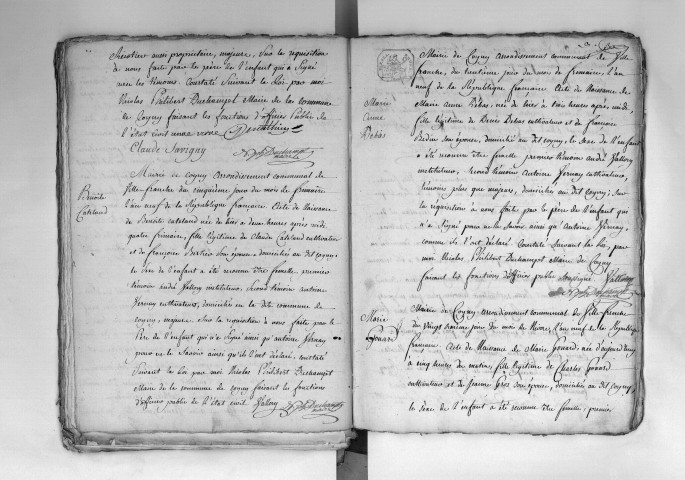 aussi propriétaire, majeure, sur la requisition
à nous faite par le père de l'enfant qui a Signé
avec les témoins. Constaté Suivant la loi par moi
Nicolas Philibert Duchampt Maire de la commune
de Cogny faisant les fonctions d'officier Public de
l'état Civil
Claude Savigny
N. Ph. Duchampt
maire
Benoite
Cateland
Mairie de Cogny arrondissement communal de
Ville-franche du cinquième jour du mois de frimaire
l'an neuf de la République françoise Acte de Naissance
de Benoite cateland née de hier à deux heures après midi
quatre frimaire, fille légitime de Claude Cateland cultivateur
et de françoise son épouse, domiciliés au dit cogny;
le Sexe de l'enfant a été reconnu être femelle, premier
témoin andré Vallony instituteur, Second témoin antoine
Jernay cultivateur, domiciliés en la dite commune de
cogny, majeurs. Sur la requisition à nous faite par le
Père de l'enfant qui n'a Signé ainsi qu'antoine Jernay
pour ne le Savoir ainsi qu'ils l'ont déclaré. constaté
Suivant la loi par moi Nicolas Philibert Duchampt
Maire de la commune de cogny faisant les fonctions
d'officier public de l'état civil Vallony N. Ph. Duchampt
maire
Marie
Anne
Debas
Mairie de Cogny arrondissement communal de Ville
franche, du huitième jour du mois de frimaire, l'an
neuf de la République françoise, Acte de Naissance de
Marie Anne Debas, née de hier à trois heures après midi,
fille légitime de Denis Debas cultivateur et de françoise
son épouse, domiciliés au dit cogny, le Sexe de l'enfant
a été reconnu être femelle premier témoin andré Vallony
instituteur, Second témoin Antoine Jernay cultivateur,
témoins plus que majeurs, domiciliés au dit Cogny; Sur
la requisition à nous faite par le père de l'enfant qui
n'a Signé pour ne le Savoir ainsi qu'Antoine Jernay,
comme ils l'ont déclaré Constaté Suivant la loi, par
moi Nicolas Philibert Duchampt Maire de Cogny
faisant les fonctions d'officier public Soussigné Vallony
N. Ph. Duchampt
Marie
Gonard
Mairie de Cogny arrondissement communal de Ville-franche
du Vingt jour du mois de Nivose, l'an neuf de la République
françoise Acte de Naissance de Marie Gonard, née d'aujourd'huy
à cinq heures du matin, fille légitime de Charles Gonard
cultivateur et de Jeanne Gros Son épouse, domiciliés au dit Cogny,
le Sexe de l'enfant a été reconnu être femelle; premier